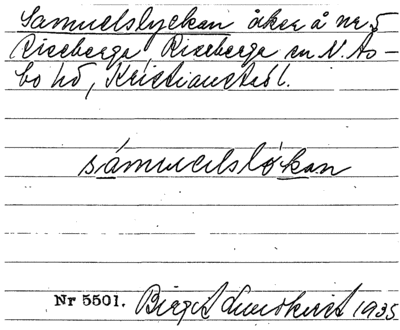 Samuelslyckan åker å nr 5
Riseberga, Riseberga sn N. Ås-
bo hd, Kristianst. l.
sámuelslø̀kan
Nr 5501. Birgit Lundkvist 1935